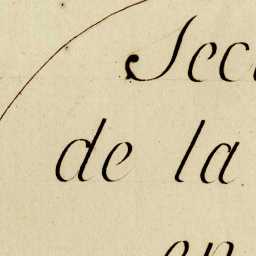 Sec
de la
en